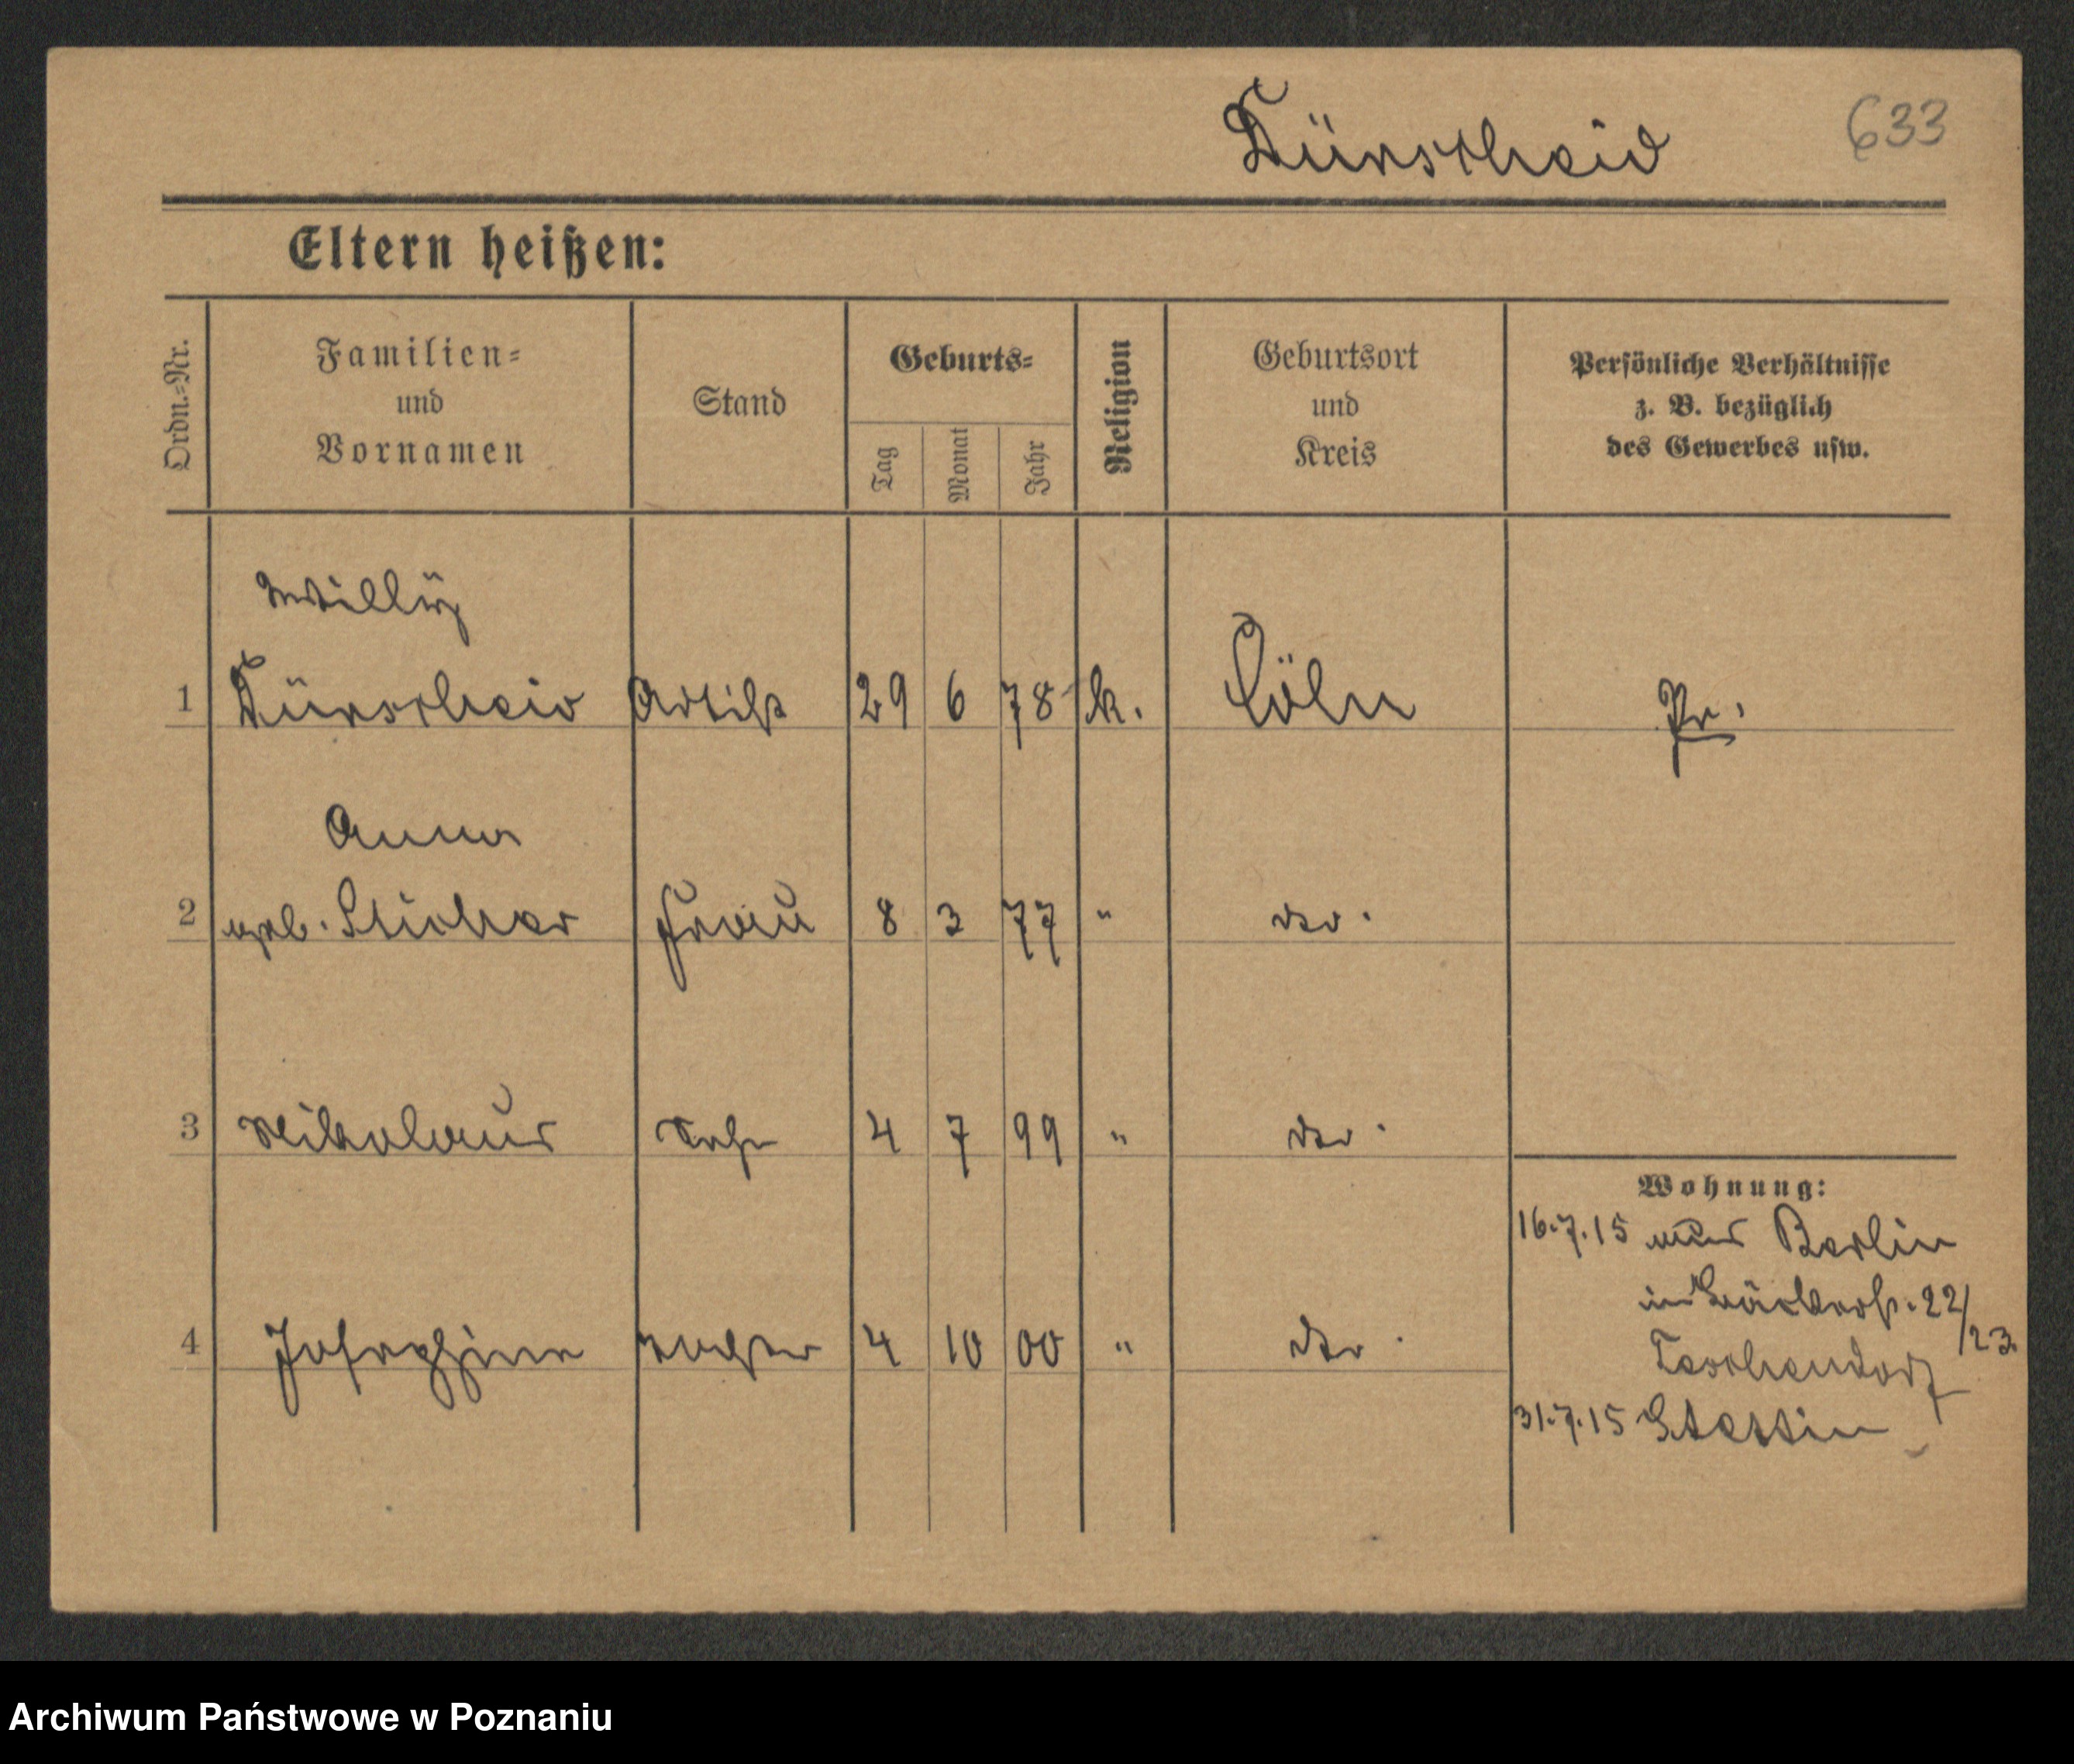 Dünscheid
633
Eltern heißen:
Ordn.=Nr.
Familien=
und
Vornamen
Stand
Geburts=
Tag
Monat
Jahr
Religion
Geburtsort
und
Kreis
Persönliche Verhältnisse
z. B. bezüglich
des Gewerbes usw.
Willy
1 Dünscheid Artist 29 6 78 k. Cöln Pr.
Anna
2 geb. Frau 8 3 77 " do.
3 Nikolaus Sohn 4 7 99 " do.
Wohnung:
16.7.15 aus Berlin
in Bäckerstr. 22/
23.
4 Josephine Tochter 4 10 00 " do.
Teschendorf
31.7.15 Stettin
Archiwum Państwowe w Poznaniu